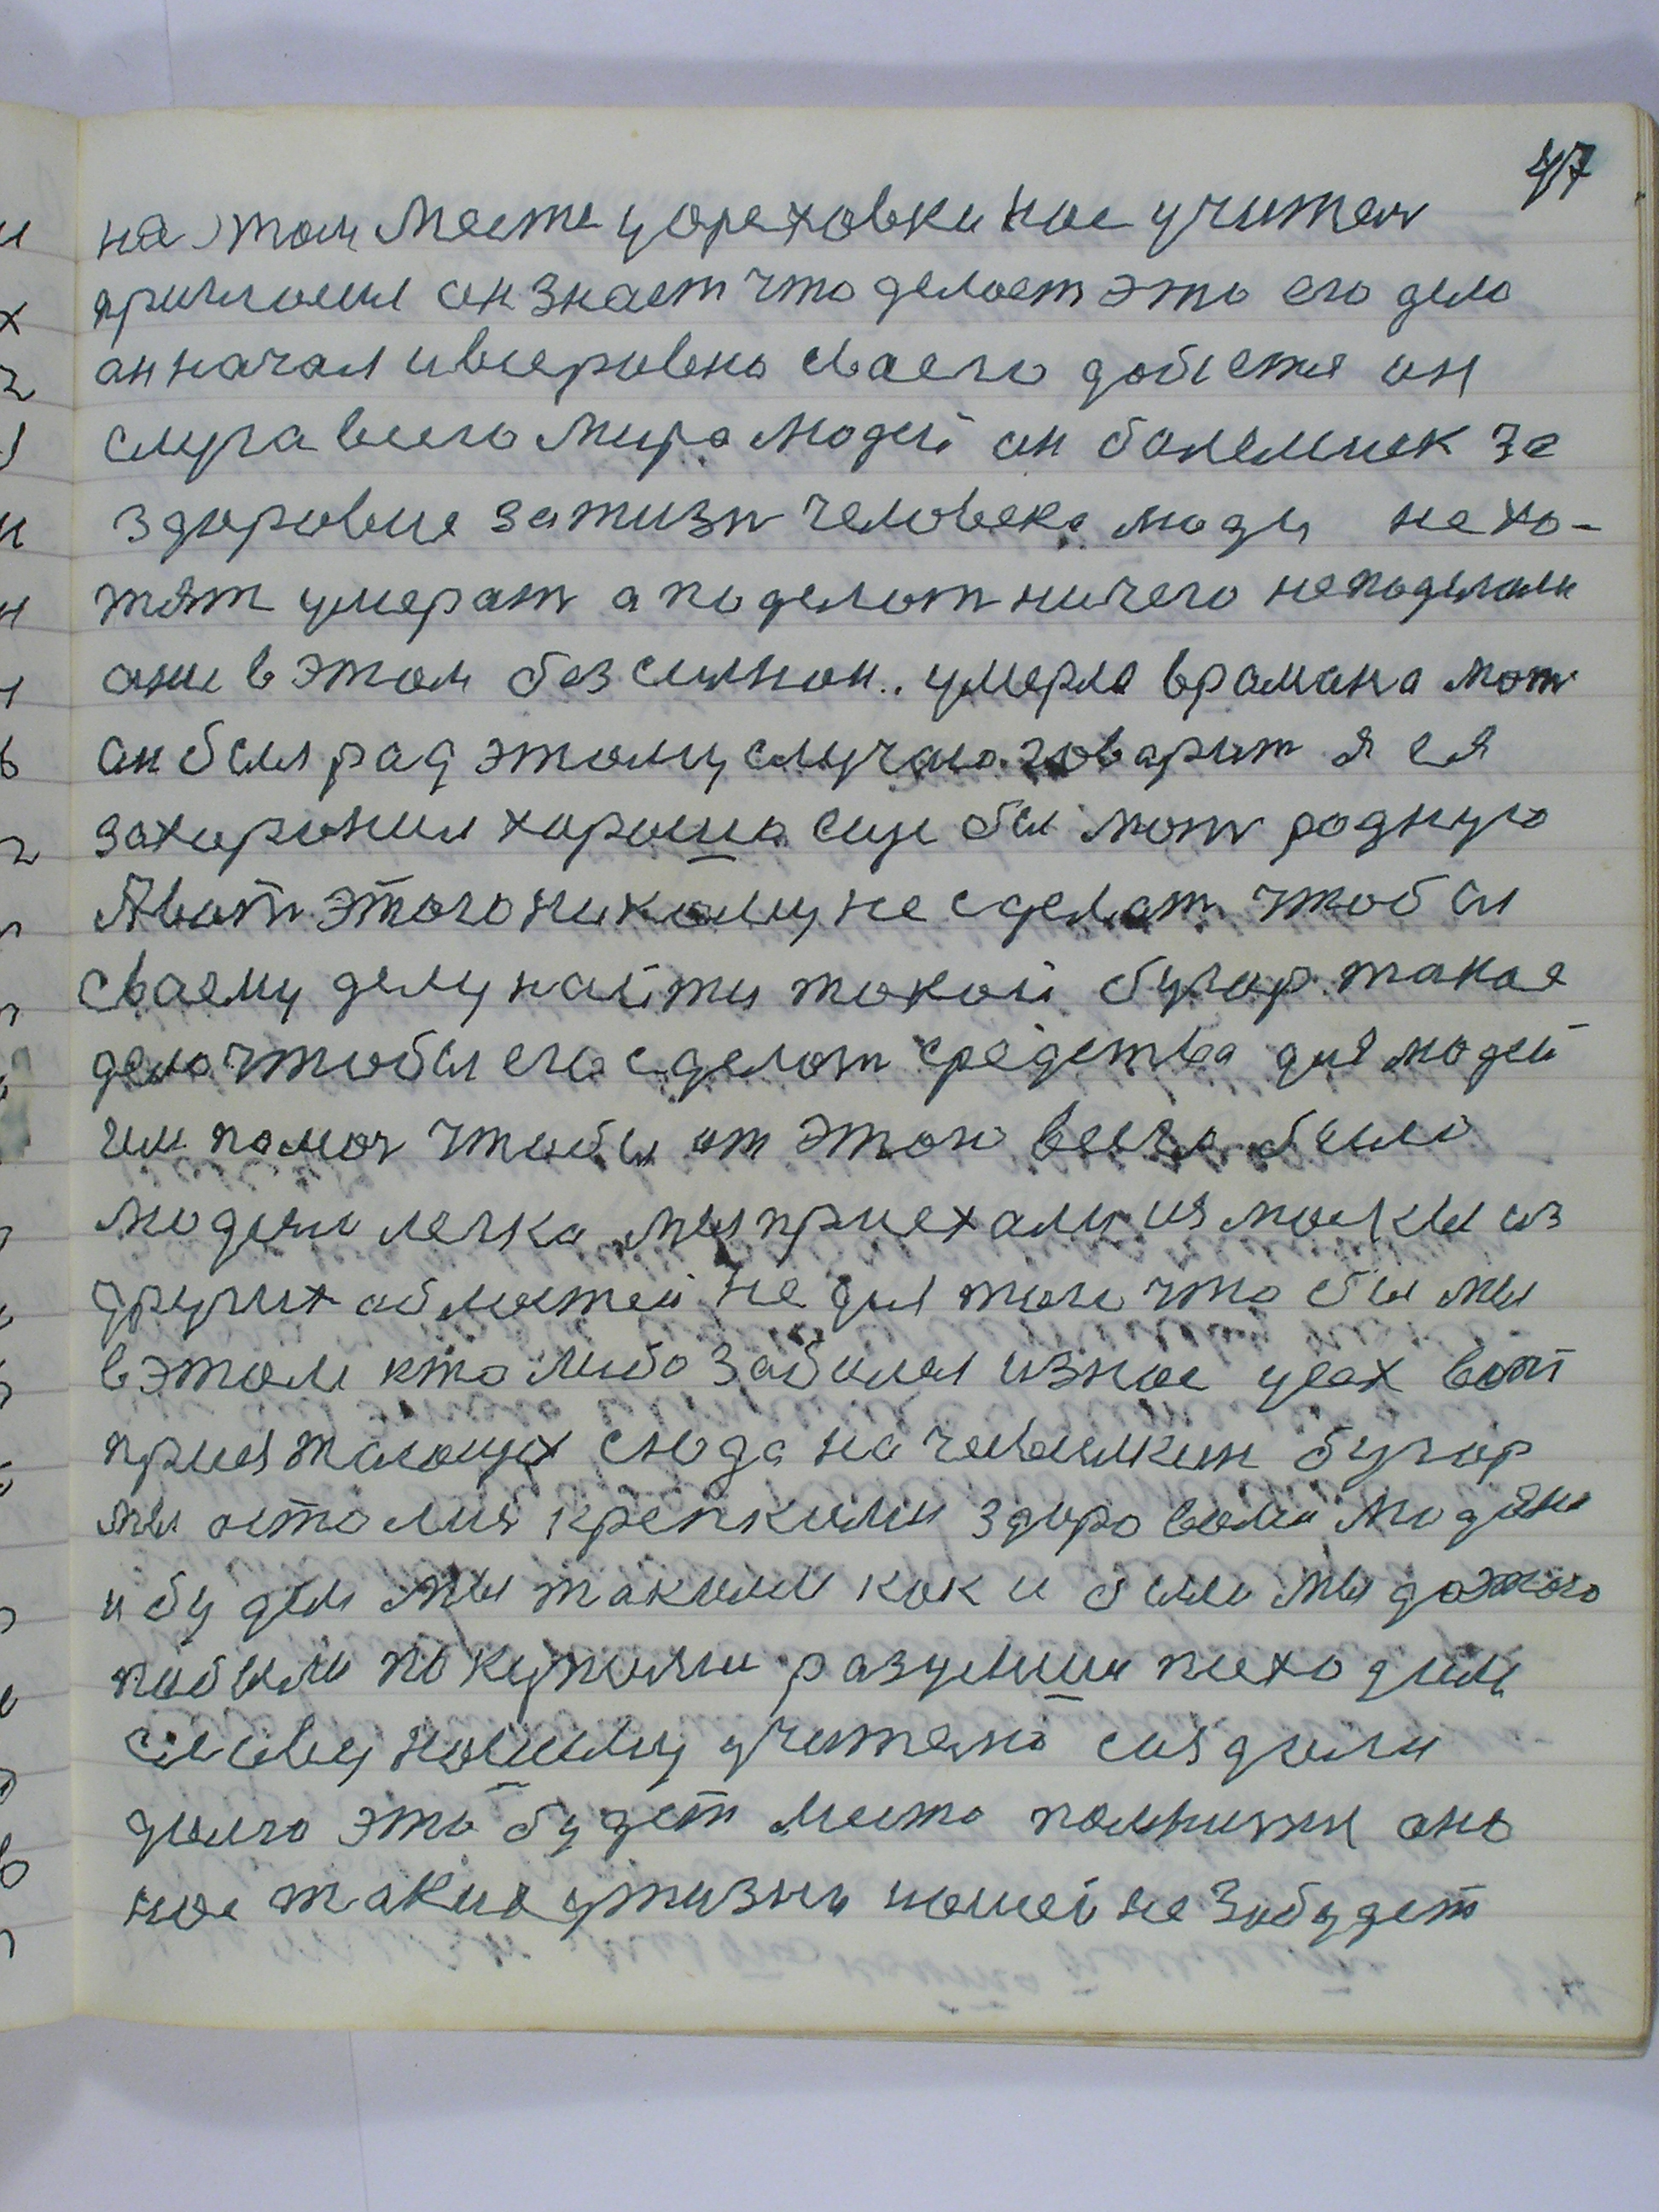 47
на этом месте у ореховки нас учитель
пригласил он знает что делает это его дело
он начал и всеровно сваего добется он
слуга всего мира людей он болельщик за
здоровие за жизнь человека люди не хо-
тят умерать а поделать ничего не поделали
они в этом безсильнои.. умерла в рамана мать
он был рад этому случаю говарит я ея
захоронил хорошо еще бы мать родную
А вот этого никому не сделать чтобы
сваему делу найти такой бугор такое
дело чтобы его сделать средства для людей
им помоч чтобы от этого всего было
людям легко мы приехали из москвы из
других областей не для того что бы мы
в этом кто либо забыли из нас усех вот
приезжающих сюда на чевилкин бугор
мы осталис крепкими здоровыми людями
и будем мы такими как и были мы до этого
побыли покупались разулись походили
славу нашему учителю создали
долго это будет место помнится оно
нас такие у жизни нашей не забудет